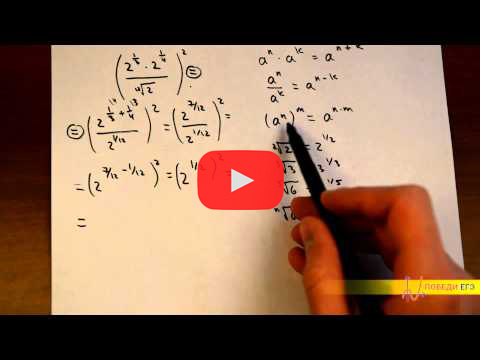 (2^{1/3} · 2^{1/4} / ¹²√2)² =
= (2^{1/3 + 1/4} / 2^{1/12})² = (2^{7/12} / 2^{1/12})² =
= (2^{7/12 - 1/12})² = (2^{1/
=
aⁿ · aᵏ = a^{n+k}
aⁿ / aᵏ = a^{n-k}
(aⁿ)ᵐ = a^{n·m}
√2 = 2^{1/2}
√3 3^{1/3}
√6 1/5
ⁿ√
ПОБЕДИ ЕГЭ